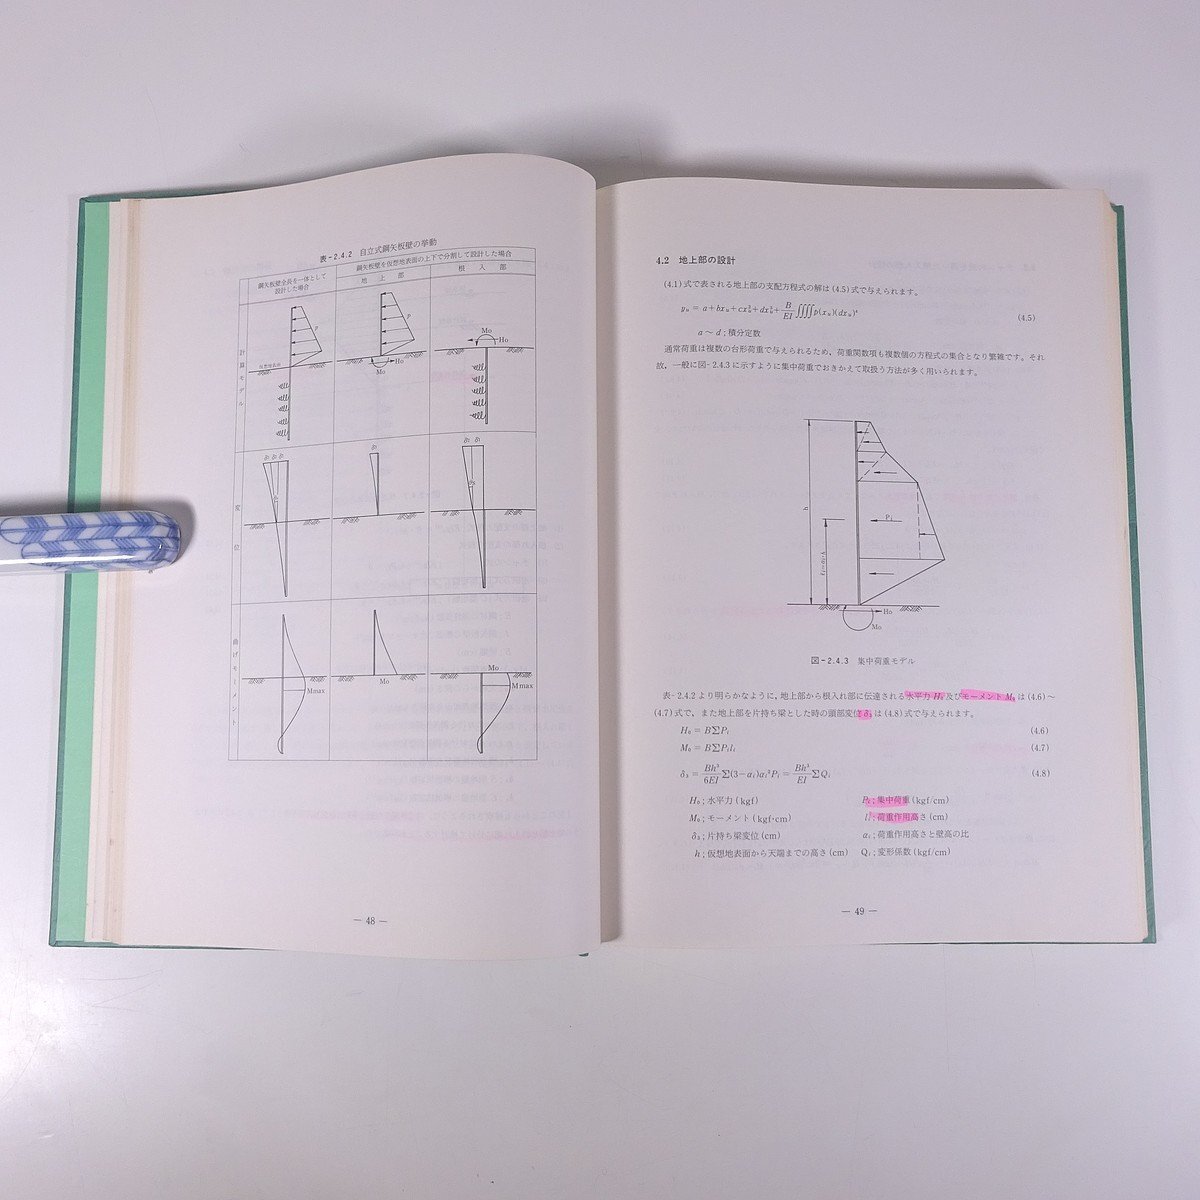 表-2.4.2 自立式鋼矢板壁の挙動
鋼矢板壁全長を一体として
設計した場合
鋼矢板壁を仮想地表面の上下で分割して設計した場合
地上部
根入部
計算モデル
P
仮想地表面
P
Ho
Mo
Mo
Ho
変位
δ₃
曲げモーメント
Mmax
Mo
Mo
Mmax
— 48 —
4.2 地上部の設計
(4.1)式で表される地上部の支配方程式の解は(4.5)式で与えられます。
yᵤ = a+bxᵤ+cxᵤ²+dxᵤ³+B/EI ∫∫∫∫p(xᵤ)(dxᵤ)⁴ (4.5)
a ～ d ; 積分定数
通常荷重は複数の台形荷重で与えられるため、荷重関数項も複数個の方程式の集合となり繁雑です。それ
故、一般に図-2.4.3に示すように集中荷重でおきかえて取扱う方法が多く用いられます。
h
Pᵢ
ℓᵢ=αᵢ・h
Ho
Mo
図-2.4.3 集中荷重モデル
表-2.4.2より明らかなように、地上部から根入れ部に伝達される水平力H₀及びモーメントM₀は(4.6)～
(4.7)式で、また地上部を片持ち梁とした時の頭部変位δ₃は(4.8)式で与えられます。
H₀ = BΣPᵢ (4.6)
M₀ = BΣPᵢlᵢ (4.7)
δ₃ = Bh³/6EI Σ(3−αᵢ)αᵢ²Pᵢ = Bh³/EI ΣQᵢ (4.8)
H₀ ; 水平力 (kgf) Pᵢ ; 集中荷重 (kgf/cm)
M₀ ; モーメント (kgf·cm) lᵢ ; 荷重作用高さ (cm)
δ₃ ; 片持ち梁変位 (cm) αᵢ ; 荷重作用高さと壁高の比
h ; 仮想地表面から天端までの高さ (cm) Qᵢ ; 変形係数 (kgf/cm)
— 49 —